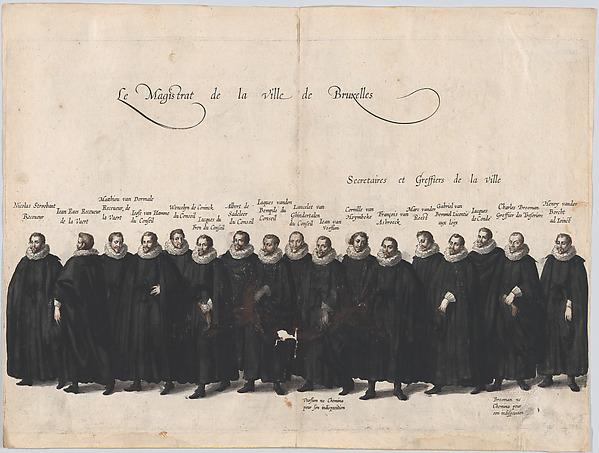 Le Magistrat de la Ville de Bruxelles
Secretaires et Greffiers de la ville
Nicolas Stroobant
Receveur
Iean Raes Recveur
de la Vaert
Matthieu van Dormale
Recveur, de
la Vaert
Iosse van Hamme
du Conseil
Wencelyn de Coninck
du Conseil
Iacques du
Fron du Conseil
Albert de
Sadeleer
du Conseil
Iaques vanden
Bempde du
Conseil
Lancelot van
Ghindertalen
du Conseil
Iean van
Vorssum
Cornille van
Heymbeke
François van
Asbroeck
Marc vander
Gabriel van
Bemmel Licentie
aux loys
Iacques
de Conde
Charles Brooman
Greffier des Thresoriers
Henry vander
Borcht
ad Ioinct
Vorssum ne Chemina
pour son indisposition
Brooman ne
Chemina pour
son indisposition